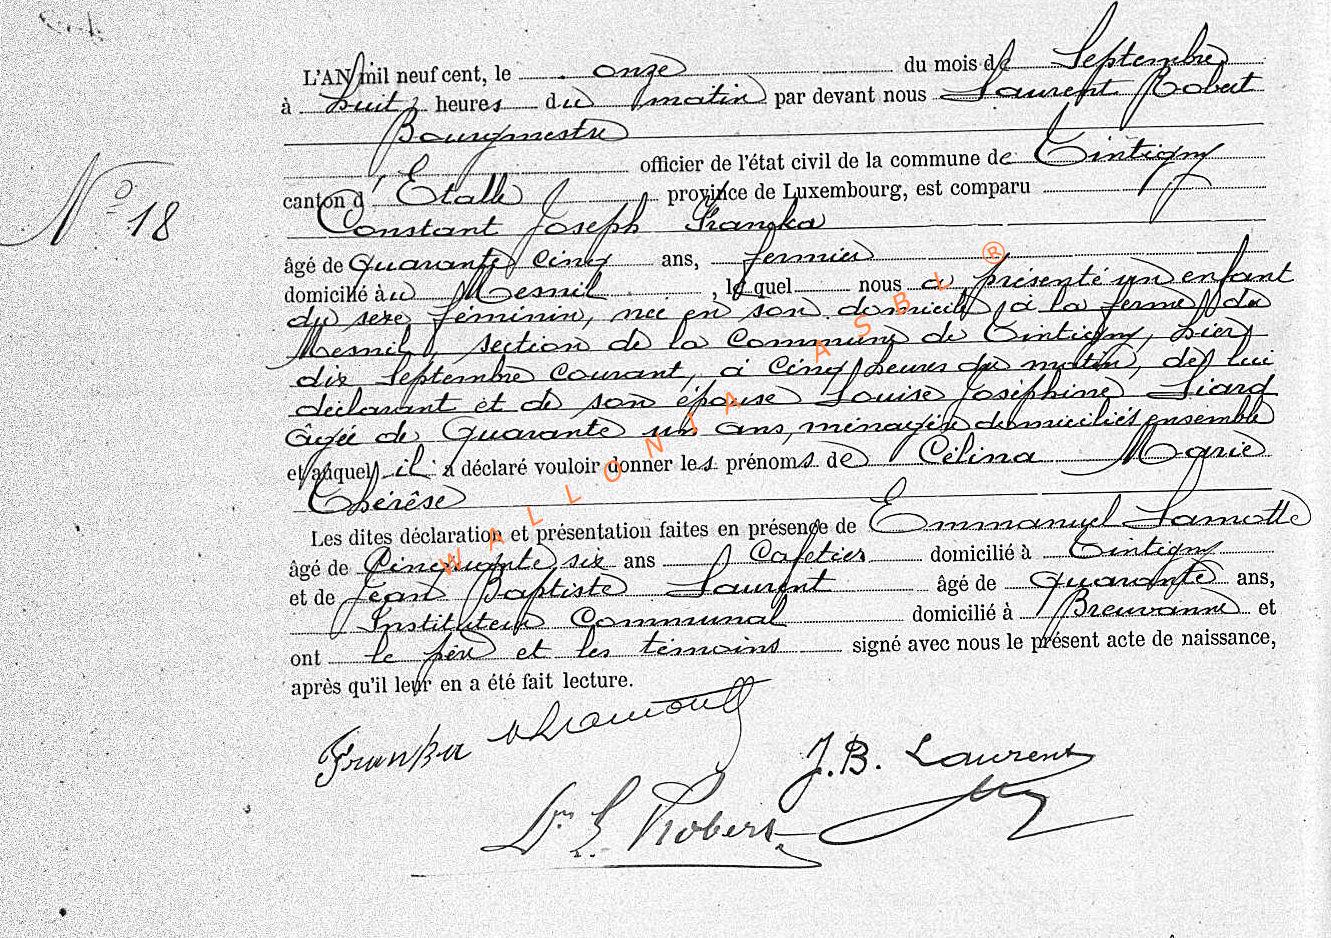 L'AN mil neuf cent, le onze du mois de Septembre
à huit heures du matin par devant nous Laurent Robert
Bourgmestre
officier de l'état civil de la commune de Tintigny
canton d'Etalle province de Luxembourg, est comparu
N° 18
Constant Joseph Franska
âgé de quarante cinq ans, fermier
domicilié au Mesnil, lequel nous a présenté un enfant
du sexe féminin, née en son domicile, à la ferme du
Mesnil, section de la Commune de Tintigny, hier
dix Septembre courant, à cinq heures du matin, de lui
déclarant et de son épouse Louise Joséphine Liard
âgée de quarante un ans, ménagère domiciliés ensemble
et auquel il a déclaré vouloir donner les prénoms de Célina Marie
Thérèse
Les dites déclaration et présentation faites en présence de Emmanuel Lamotte
âgé de Cinquante six ans Cafetier domicilié à Tintigny
et de Jean Baptiste Laurent âgé de quarante ans,
Instituteur Communal domicilié à Breuvanne et
ont le père et les témoins signé avec nous le présent acte de naissance,
après qu'il leur en a été fait lecture.
Franska
J.B. Laurent
Dr L. Robert
WALLONIA ASBL ®